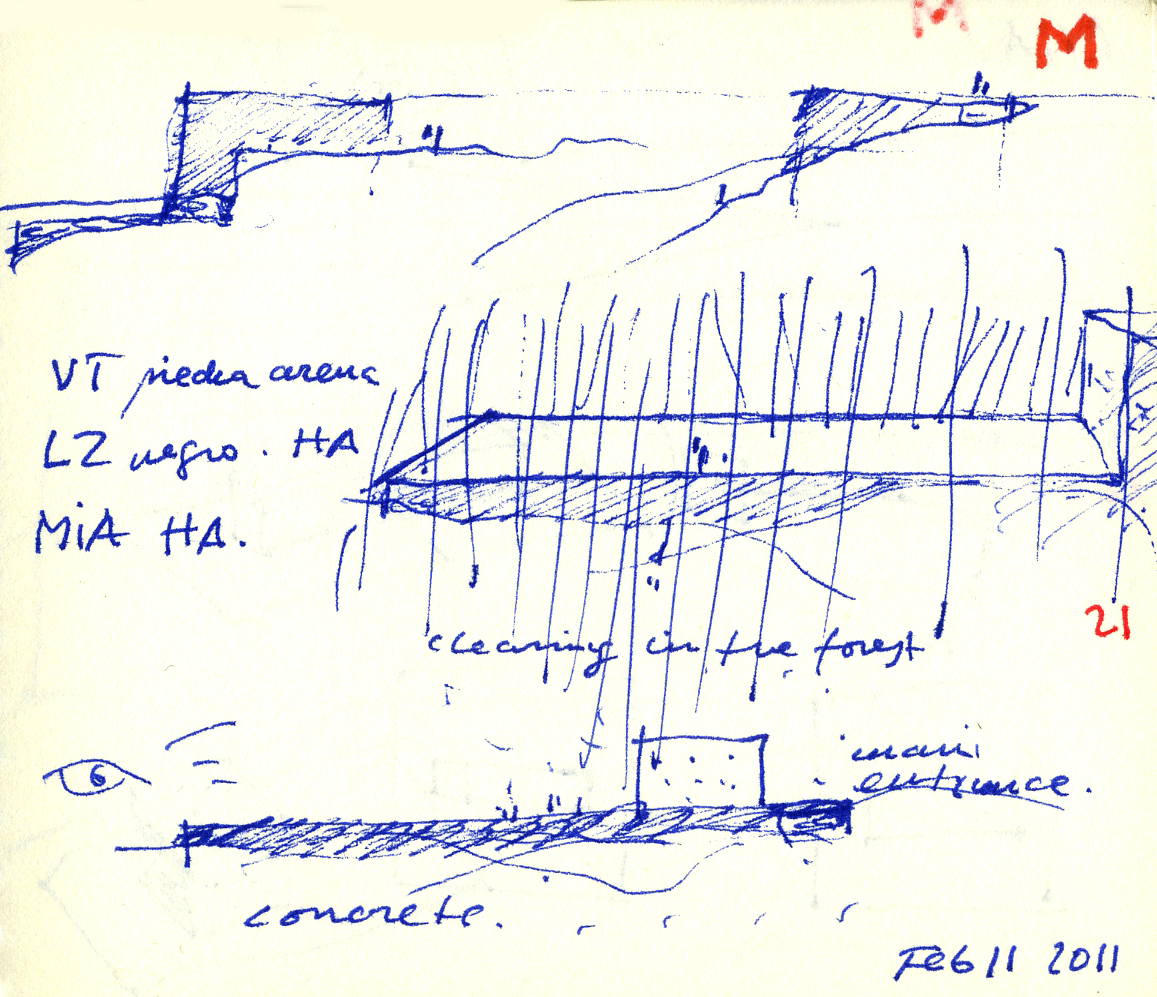 M
M
VT piedra arena
LZ negro. HA
MiA HA.
21
clearing in the forest
main
entrance.
concrete.
Feb 11 2011